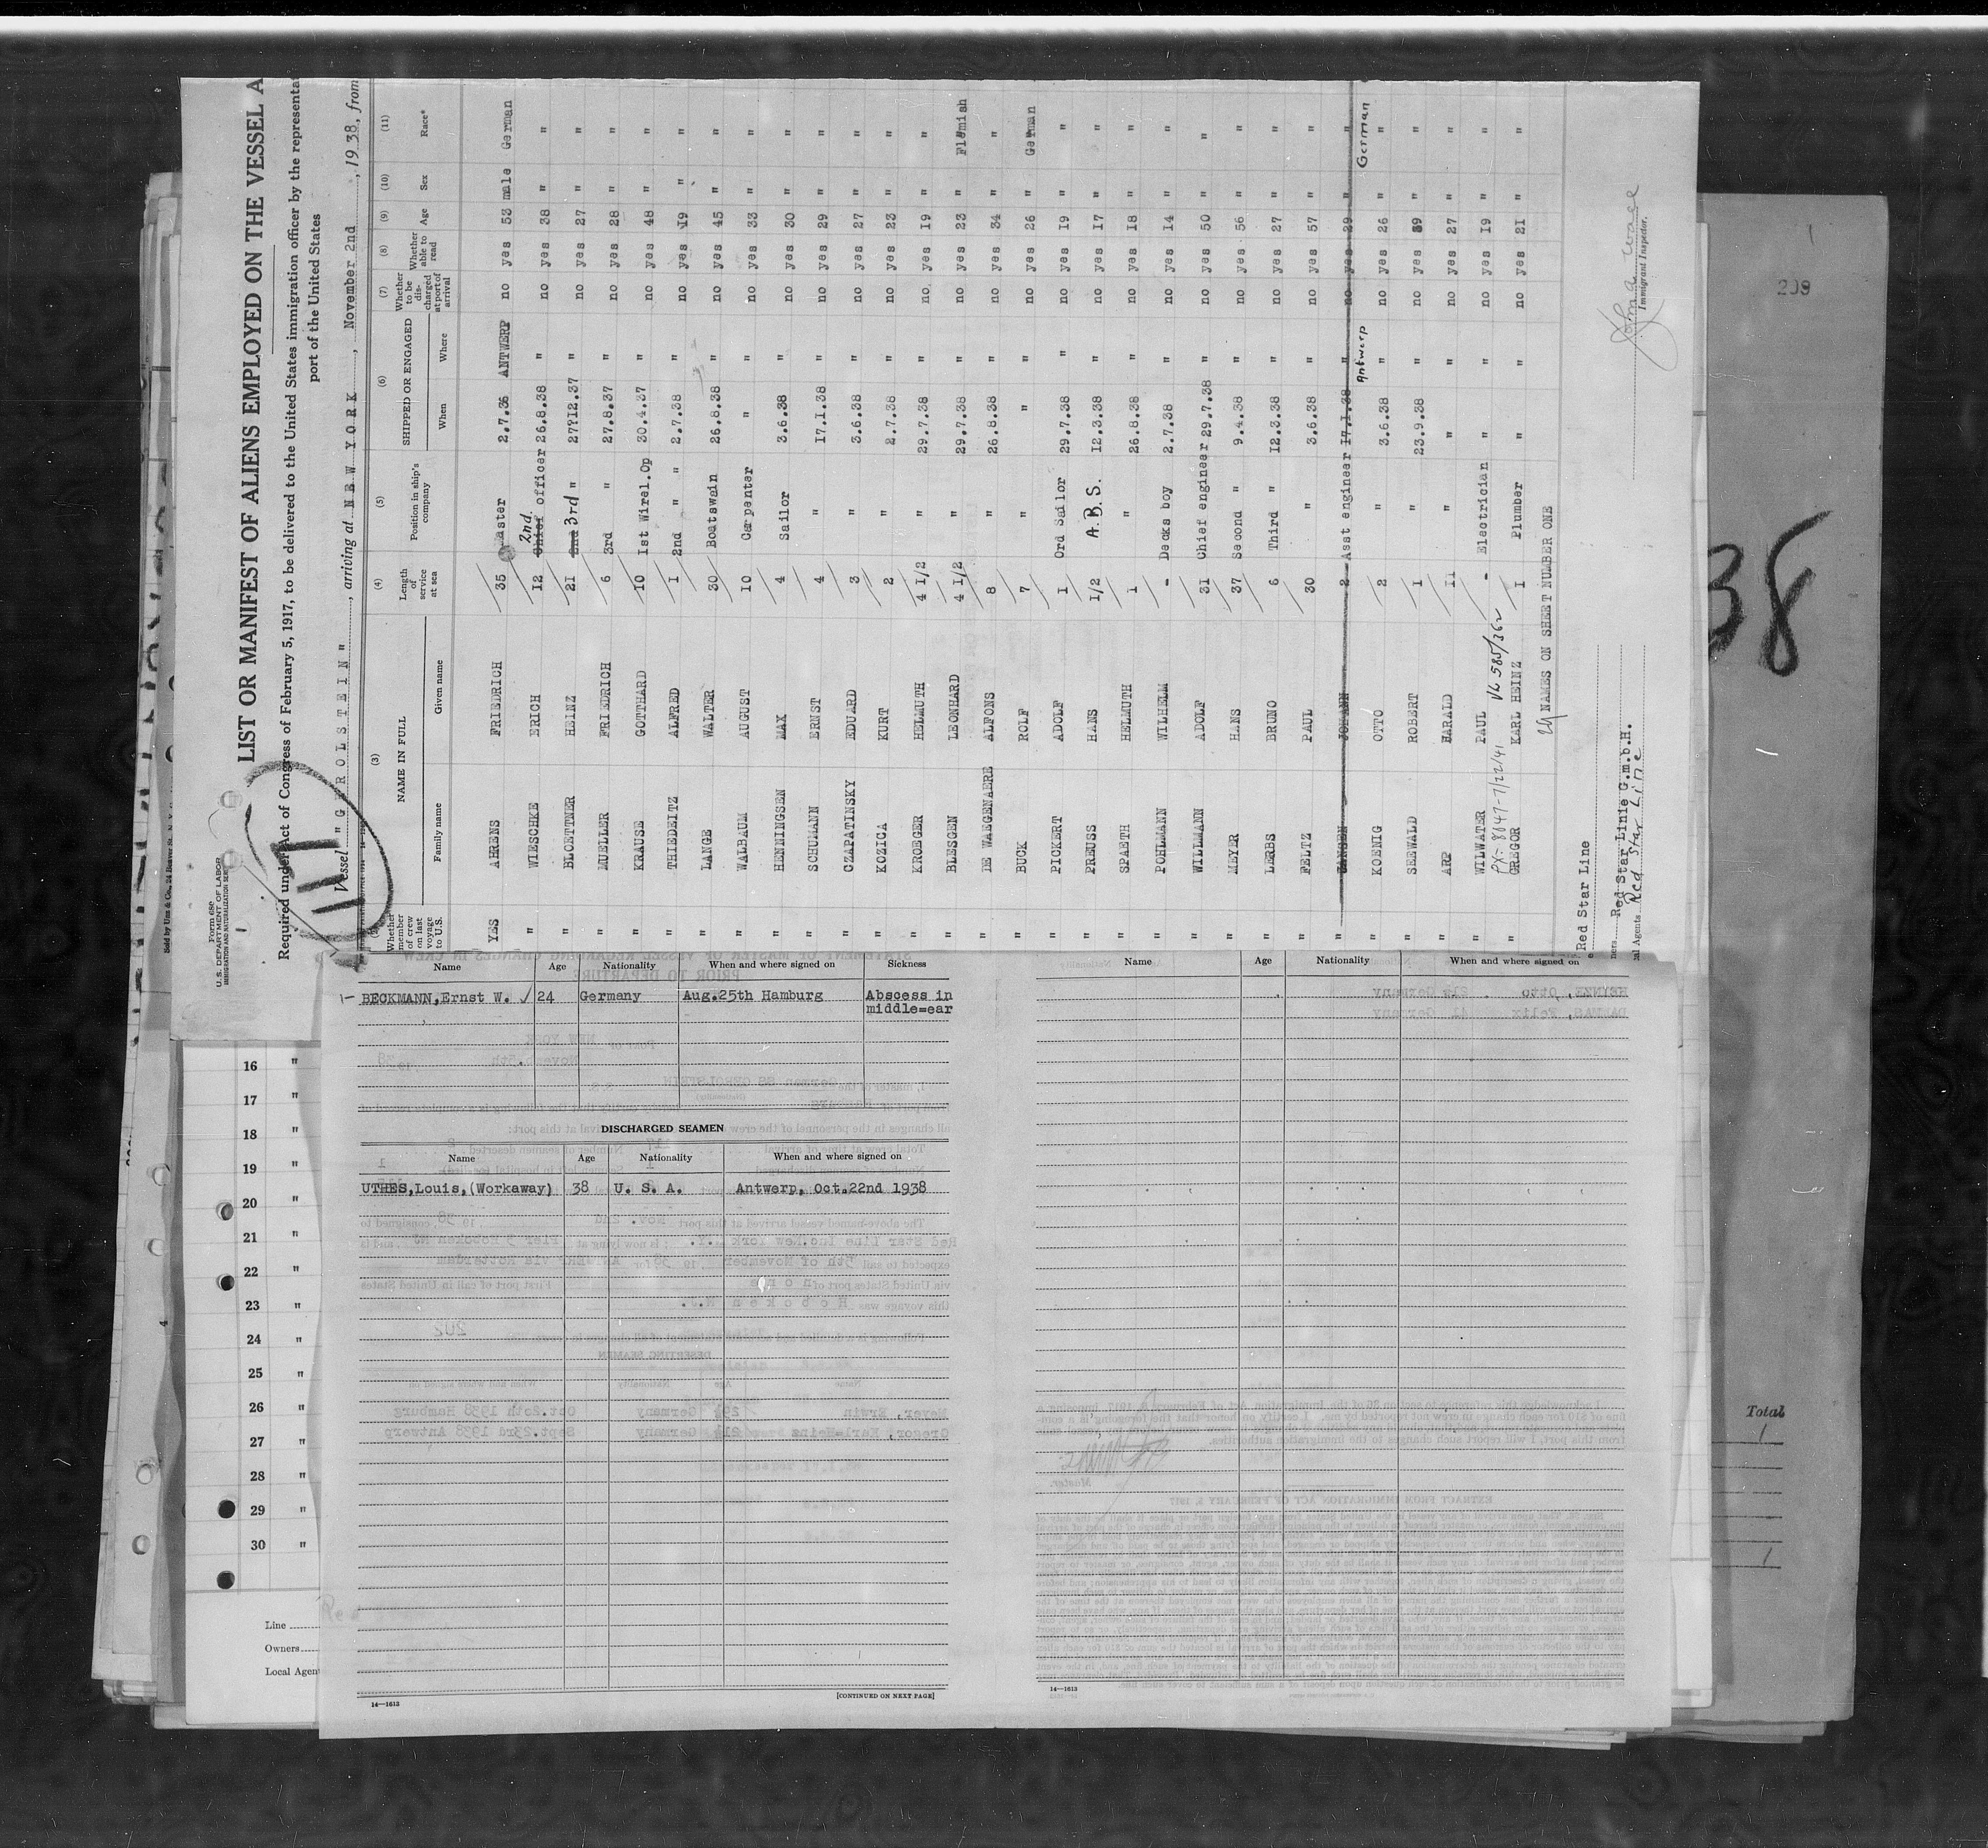 Form 680
U.S. DEPARTMENT OF LABOR
IMMIGRATION AND NATURALIZATION SER
LIST OR MANIFEST OF ALIENS EMPLOYED ON THE VESSEL A
Required under Act of Congress of February 5, 1917, to be delivered to the United States immigration officer by the representa
port of the United States
Vessel "GEROLSTEIN", arriving at NEW YORK, November 2nd, 1938, from
Whether member of crew on last voyage to U.S. (3) NAME IN FULL Family name Given name (4) Length of service at sea (5) Position in ship's company (6) SHIPPED OR ENGAGED When Where (7) Whether to be discharged at port of arrival (8) Whether able to read (9) Age (10) Sex (11) Race*
YES AHRENS FRIEDRICH 35 Master 2.7.36 ANTWERP no yes 53 male German
" WIESCHKE ERICH 12 Chief 2nd. officer 26.8.38 " no yes 38 " "
" BLOETTNER HEINZ 21 2nd 3rd " 27?12.37 " no yes 27 " "
" MUELLER FRIEDRICH 6 3rd " 27.8.37 " no yes 28 " "
" KRAUSE GOTTHARD 10 1st Wirel.Op 30.4.37 " no yes 48 " "
" THIEDEITZ ALFRED 1 2nd " " 2.7.38 " no yes 19 " "
" LANGE WALTER 30 Boatswain 26.8.38 " no yes 45 " "
" WALBAUM AUGUST 10 Carpenter " " no yes 33 " "
" HENNINGSEN MAX 4 Sailor 3.6.38 " no yes 30 " "
" SCHUMANN ERNST 4 " 17.1.38 " no yes 29 " "
" CZAPATINSKY EDUARD 3 " 3.6.38 " no yes 27 " "
" KOZICA KURT 2 " 2.7.38 " no yes 23 " "
" KROEGER HELMUTH 4 1/2 " 29.7.38 " no yes 19 " "
" BLESSGEN LEONHARD 4 1/2 " 29.7.38 " no yes 23 " Flemish
" DE WAEGENAERE ALFONS 8 " 26.8.38 " no yes 34 " "
" BUCK ROLF 7 " " " no yes 26 " German
" PICKERT ADOLF 1 Ord Sailor 29.7.38 " no yes 19 " "
" PREUSS HANS 1/2 A.B.S. 12.3.38 " no yes 17 " "
" SPAETH HELMUTH 1 " 26.8.38 " no yes 18 " "
" POHLMANN WILHELM - Decks boy 2.7.38 " no yes 14 " "
" WILLMANN ADOLF 31 Chief engineer 29.7.38 " no yes 50 " "
" MEYER HANS 37 Second " 9.4.38 " no yes 56 " "
" LERBS BRUNO 6 Third " 12.3.38 " no yes 27 " "
" FELTZ PAUL 30 " 3.6.38 " no yes 57 " "
" JANSEN JOHANN 2 Asst engineer 17.1.38 " no yes 29 " "
" KOENIG OTTO 2 " 3.6.38 Antwerp " no yes 26 " German "
" SEEWALD ROBERT 1 " 23.9.38 " no yes 39 " "
" ARP HARALD 11 " " " no yes 27 " "
WILWATER PAUL - Electrician " " no yes 19 " "
PX-8647-7/22/41 VL 585/362
" GREGOR KARL HEINZ 1 Plumber " " no yes 21 " "
NAMES ON SHEET NUMBER ONE
Red Star Line
ners Red Star Linie G.m.b.H.
al Agents Red Star Line
Immigrant Inspector.
Name Age Nationality When and where signed on Sickness
BECKMANN,Ernst W. 24 Germany Aug.25th Hamburg Abscess in
middle=ear
DISCHARGED SEAMEN
Name Age Nationality When and where signed on
UTHES,Louis,(Workaway) 38 U. S. A. Antwerp, Oct.22nd 1938
14—1613
[CONTINUED ON NEXT PAGE]
Name Age Nationality When and where signed on
14—1613
16 "
17 "
18 "
19 "
20 "
21 "
22 "
23 "
24 "
25 "
26 "
27 "
28 "
29 "
30 "
Line
Owners
Local Agen
209
38
Total
1
1